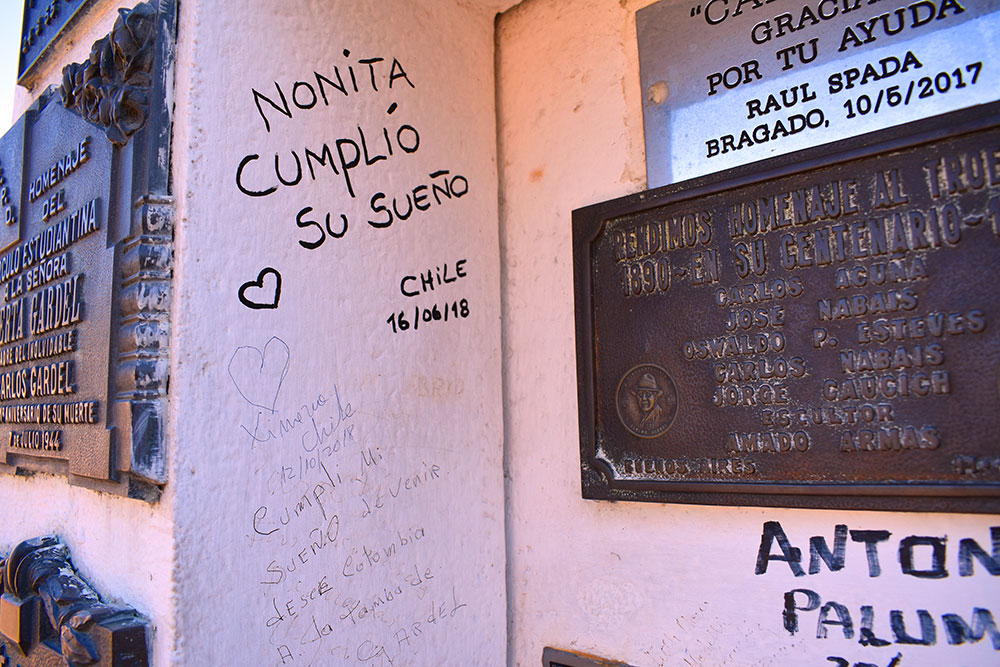 HOMENAJE
DEL
ESTUDIANTINA
A LA SEÑORA
GARDEL
DEL INOLVIDABLE
CARLOS GARDEL
ANIVERSARIO DE SU MUERTE
DE JULIO 1944
NONITA
CUMPLIÓ
SU SUEÑO
CHILE
16/06/18
Chile
12/10/2018
Cumpli Mi
SUEÑO de venir
desde Colombia
A la tumba de
GARDEL
GRACIAS
POR TU AYUDA
RAUL SPADA
BRAGADO, 10/5/2017
RENDIMOS HOMENAJE AL
1890-EN SU CENTENARIO-
CARLOS ACUÑA
JOSE NABAIS
OSWALDO P. ESTEVES
CARLOS NABAIS
JORGE CAUCICH
ESCULTOR
AMADO ARMAS
BUENOS AIRES
ANTON
PALUM